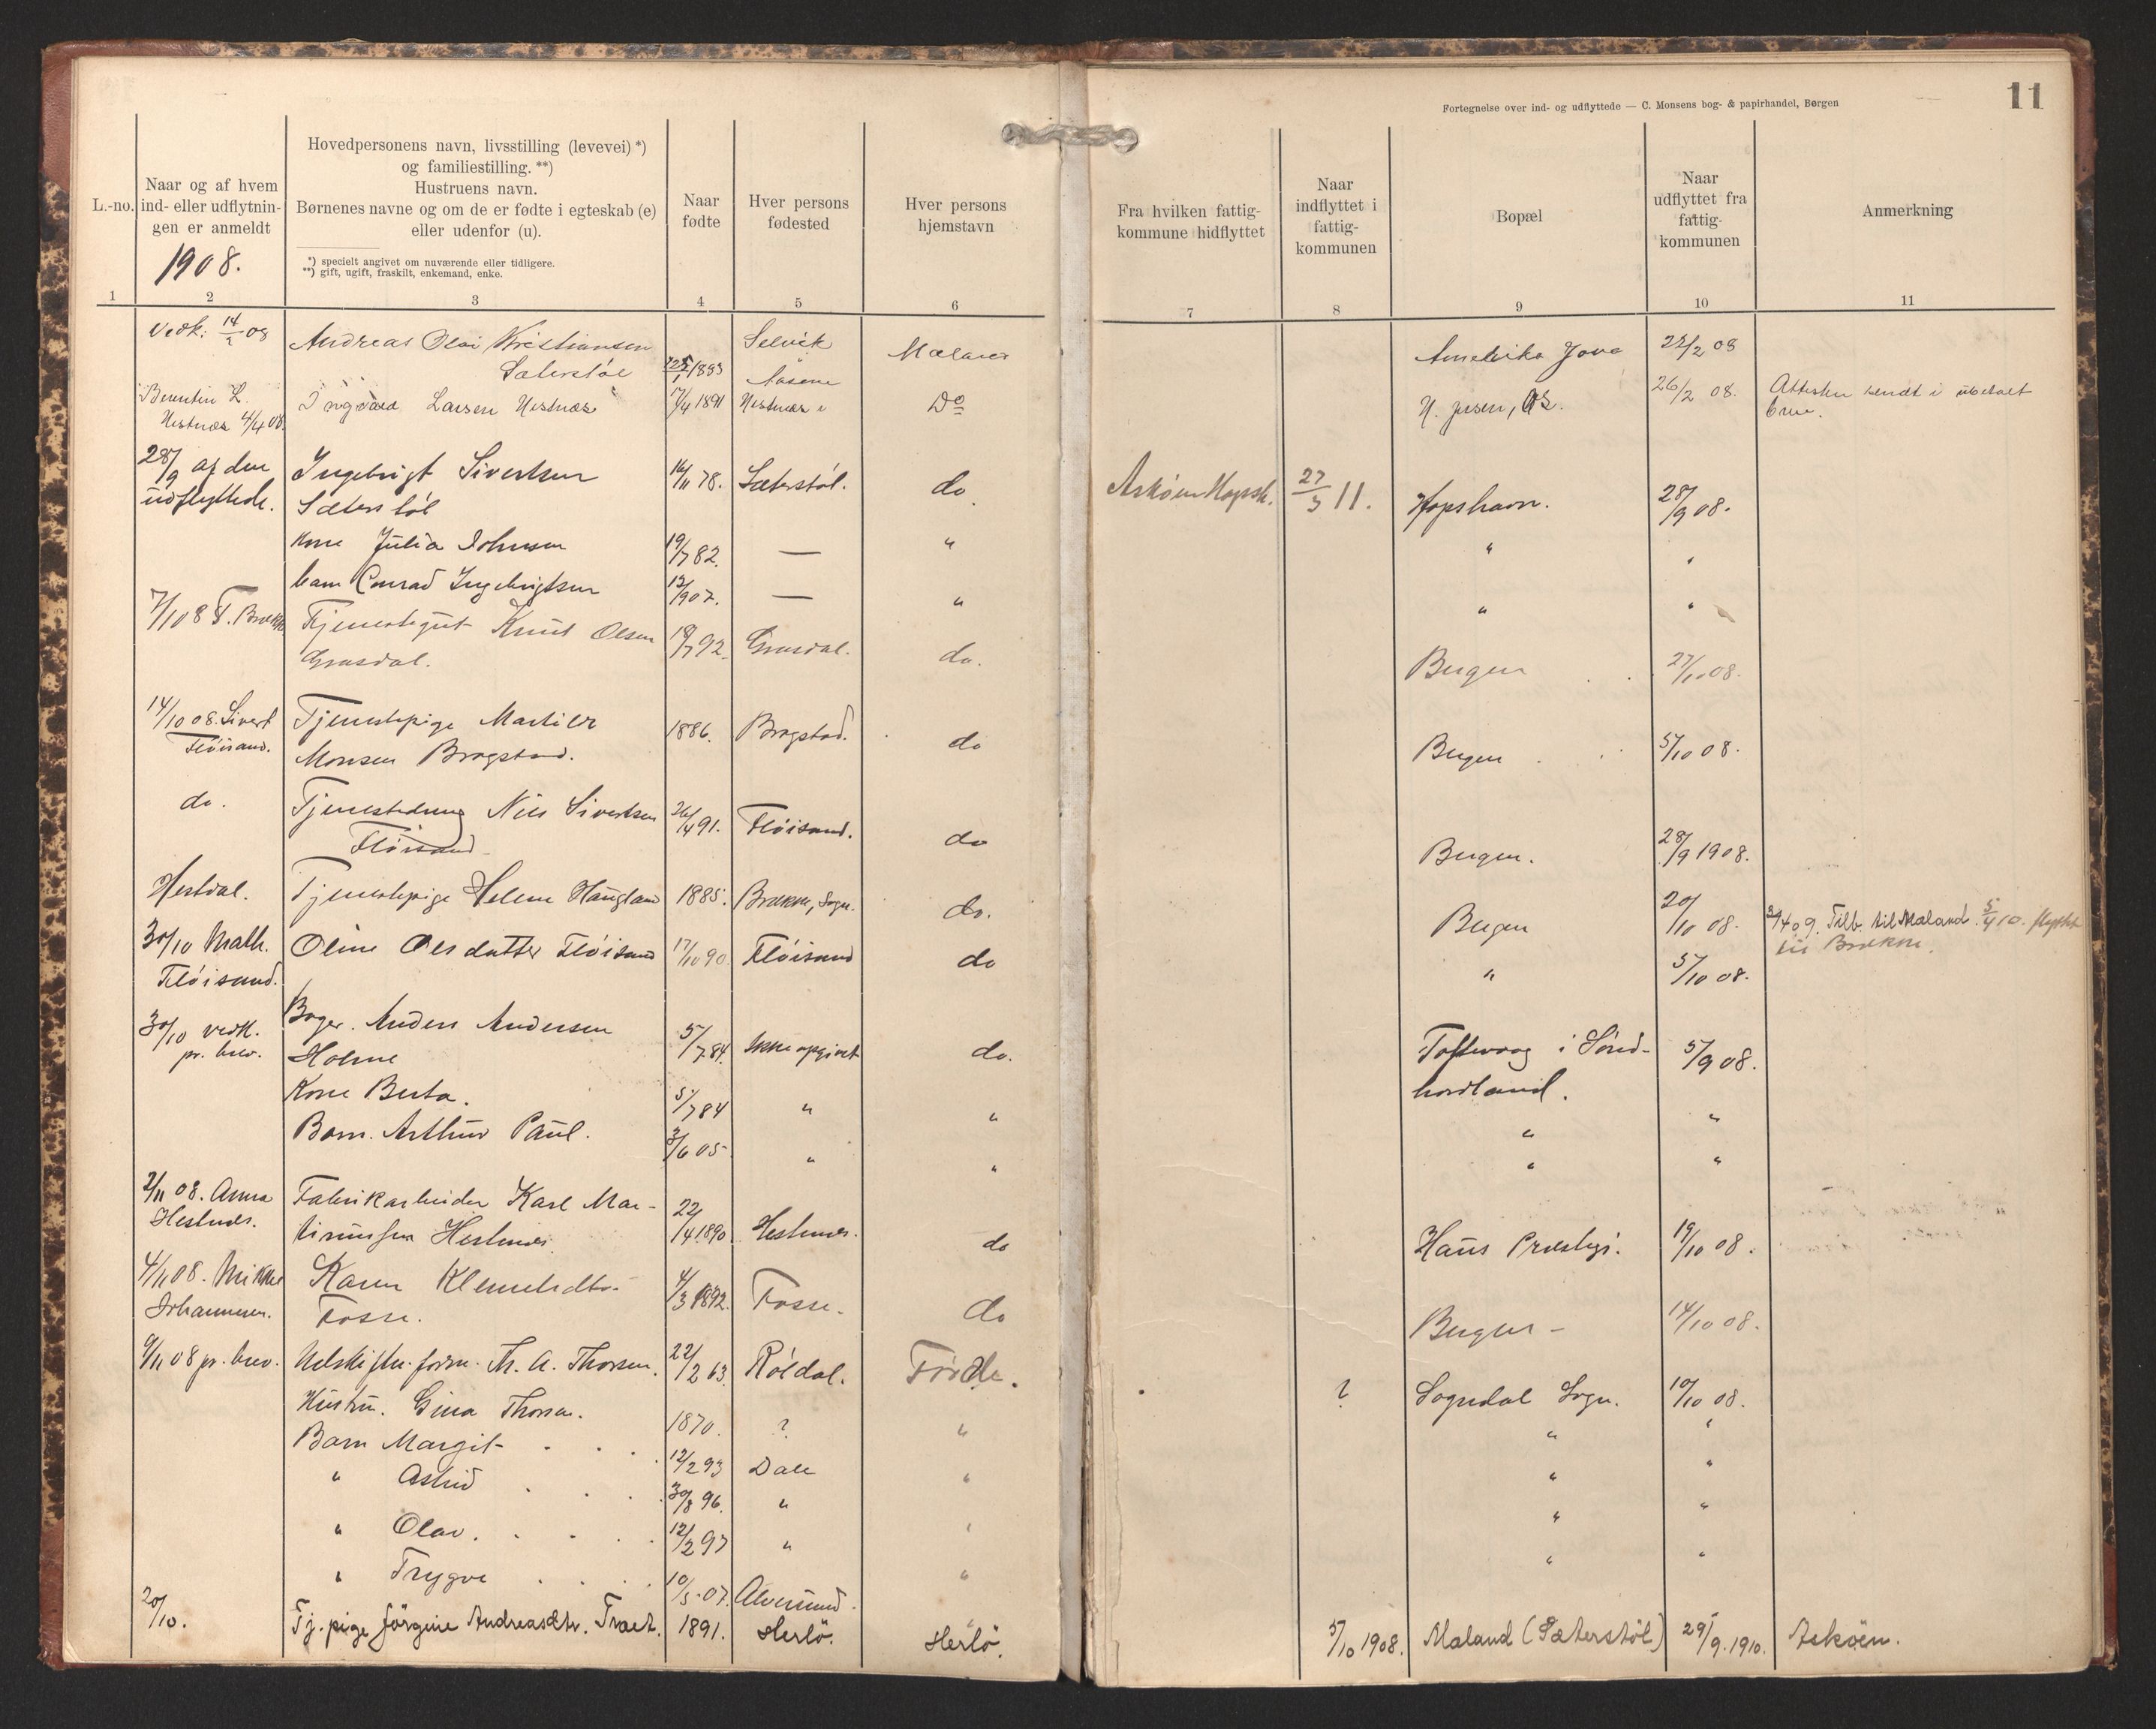 Fortegnelse over ind- og udflyttede — C. Monsens bog- & papirhandel, Bergen
11
L.-no.
Naar og af hvem
ind- eller udflytnin-
gen er anmeldt
1908.
Hovedpersonens navn, livsstilling (levevei) *)
og familiestilling. **)
Hustruens navn.
Børnenes navne og om de er fødte i egteskab (e)
eller udenfor (u).
*) specielt angivet om nuværende eller tidligere.
**) gift, ugift, fraskilt, enkemand, enke.
Naar
fødte
Hver persons
fødested
Hver persons
hjemstavn
Fra hvilken fattig-
kommune hidflyttet
Naar
indflyttet i
fattig-
kommunen
Bopæl
Naar
udflyttet fra
fattig-
kommunen
Anmerkning
1 2 3 4 5 6 7 8 9 10 11
Vedk: 14/2 08 Andreas Olai Kristiansen Selvik Mæland Amerika 22/2 08
Sæterstøl 1883
Berentin L. Larsen Hestnæs 17/4 1891 Hestnæs Do 26/2 08. Attesten sendt i ubetalt
Hestnæs 4/4 08. brev.
28/9 af den Ingebrigt Sivertsen 16/11 78. Sæterstøl. do. Askøen 27/3 11. Hopshavn. 28/9 08.
udflyttede. Sæterstøl
Kone Julia Johnsen 19/7 82. — " " "
barn Conrad Ingebrigtsen — " " "
7/10 8 T. Brekke Tjenestegut Knut Olsen 18/7 92. Grasdal. do. Bergen 27/10 08.
Grasdal.
14/10 08. Sivert Tjenestepige 1886. Brogstad. do Bergen 5/10 08.
Fløisand. Monsen Brogstad.
do. Tjenestedreng Nils Sivertsen 26/4 91. Fløisand. do Bergen. 28/9 1908.
Fløisand
Hestdal. Tjenestepige Helene Haugland 1885. Brække, Sogn. do. Bergen 20/10 08. Tilb. til Mæland. 5/4 10. flyttet
til Brække.
30/10 Math. Oline Olsdatter Fløisand 17/10 90. Fløisand do " 5/10 08.
Fløisand.
30/10 vedk. Bager. Anders Andersen 5/7 84. Ikke opgivet do. Toftevaag i Sønd- 5/9 08.
pr. brev. Holme hordland.
Kone Berta. 5/7 84 " " " "
Barn. Arthur Paul. 3/6 05 " " " "
2/11 08. Anna Fabrikarbeider Karl Mar- 22/4 1890 Hestnes. do Haus Præstegj. 19/10 08.
Hestnes. tinussen Hestnes.
4/11 08. Mikkel Karen Klemetsdtr. 4/3 1892. Fosse. do Bergen - 14/10 08.
Johannesen. Fosse.
9/11 08 pr. brev. Th. A. Thorsen. 22/2 63. Røldal. Førde. ? Sogndal Sogn. 10/10 08.
Hustru. Gina Thorsen. 1870. ? " " "
Barn Margit 12/2 93 Dale " " "
" Astrid 30/8 96. " " " "
" Olav. 12/2 97 " " " "
" Trygve 10/5 07. Alversund. "
20/10. Tj. pige Jörgine Andreasdtr. Træt. 1891. Herlö. Herlö. 5/10 1908. Mæland (Sæterstøl) 29/9. 1910. Askøen.